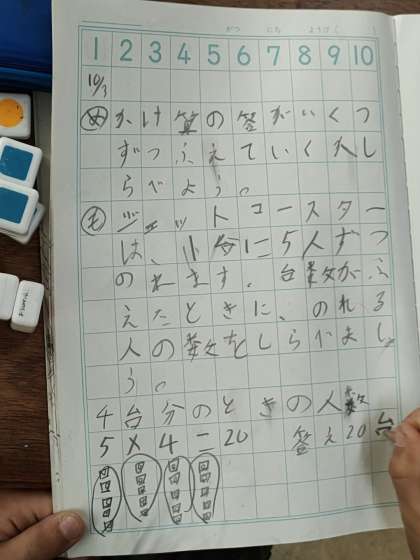 がつ にち ようび
1 2 3 4 5 6 7 8 9 10
10/3
め かけ算の答がいくつ
ずつふえていくかし
らべよう。
も ジェットコースター
は、台に5人ずつ
のれます。台数がふ
えたときに、のれる
人の数をしらべまし
う。
4台分のときの人数
5×4=20 答え20台